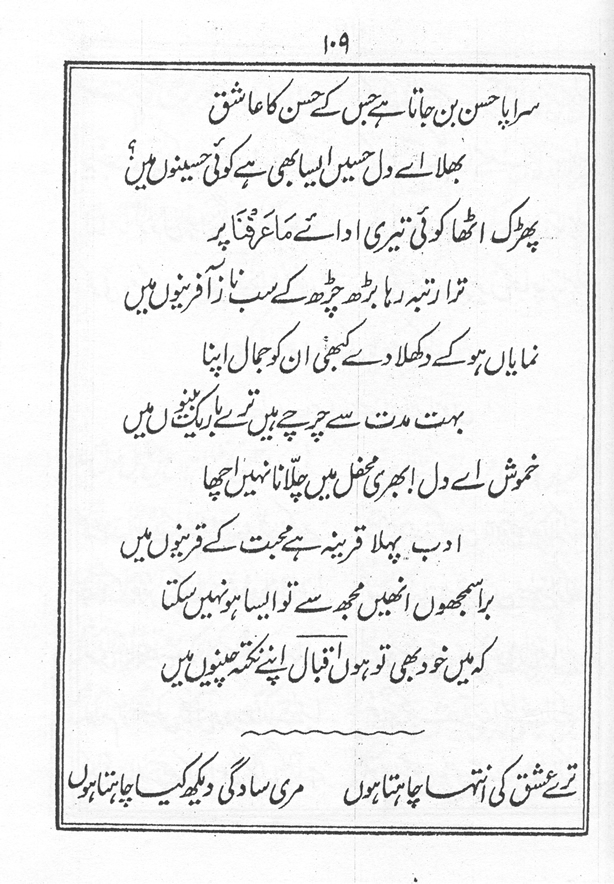 ۱۰۹
سراپا حسن بن جاتا ہے جس کے حسن کا عاشق
بھلا اے دل حسیں ایسا بھی ہے کوئی حسینوں میں؟
پھڑک اٹھا کوئی تیری ادائے مَا عَرَفْنَا پر
ترا رتبہ رہا بڑھ چڑھ کے سب ناز آفرینوں میں
نمایاں ہو کے دکھلا دے کبھی ان کو جمال اپنا
بہت مدت سے چرچے ہیں ترے باریک بینوں میں
خموش اے دل! بھری محفل میں چلّانا نہیں اچھا
ادب پہلا قرینہ ہے محبت کے قرینوں میں
برا سمجھوں انھیں مجھ سے تو ایسا ہو نہیں سکتا
کہ میں خود بھی تو ہوں اقبال اپنے نکتہ چینوں میں
ترے عشق کی انتہا چاہتا ہوں مری سادگی دیکھ کیا چاہتا ہوں